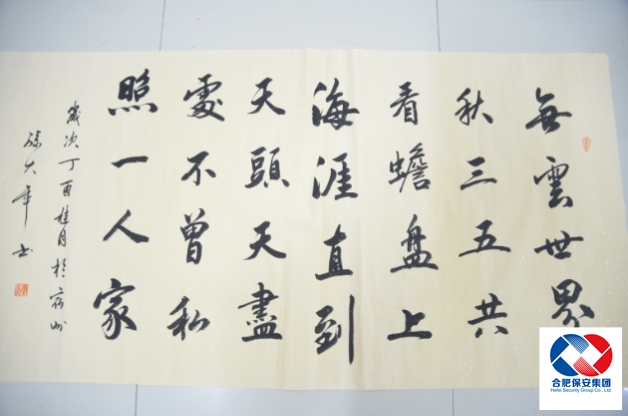 無雲世界
秋三五共
看蟾盤上
海涯直到
天頭天盡
處不曾私
照一人家
歲次丁酉桂月於宿州
徐大年书
合肥保安集团
Hefei Security Group Co., Ltd